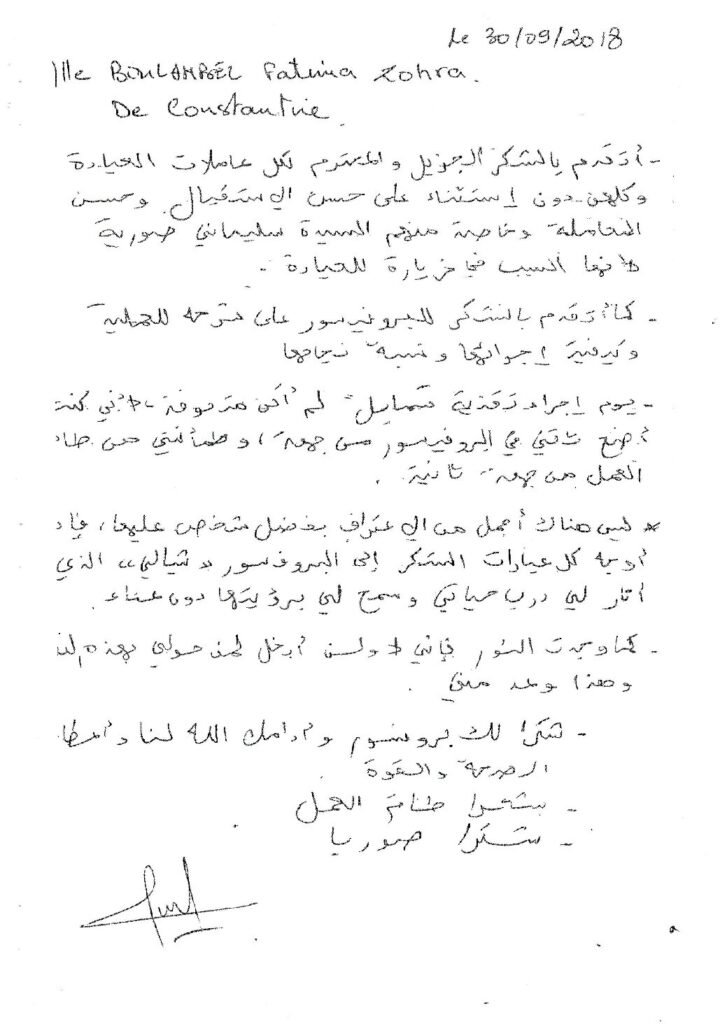 Le 30/09/2018
Mlle BOULAMBEL Fatima Zohra.
De Constantine.
- أتقدم بالشكر الجزيل والمحترم لكل عاملات العيادة
وكلهن دون إستثناء على حسن الاستقبال وحسن
المعاملة وخاصة منهم السيدة سليماني صورية
لانها السبب في زيارة للعيادة.
- كما أتقدم بالشكر للبروفيسور على شرحه للعملية
وكيفية إجرائها ونسبة نجاحها
- يوم إجراء لم أكن متخوفة لأنني كنت
أضع ثقتي في البروفيسور من جهة، و من
العمل من جهة ثانية.
* ليس هناك أجمل من الاعتراف بفضل شخص علينا،
أوجه كل عبارات الشكر إلى البروفسور "شيالي" الذي
أنار لي درب حياتي وسمح لي برؤيتها دون عناء.
- كما وجدت النور فإني ولن أبخل لمن حولي بهذه
وهذا وعد مني.
- شكرا لك بروفسور وأدامك الله لنا
الصحة والقوة
- شكرا طاقم العمل
- شكرا صوريا